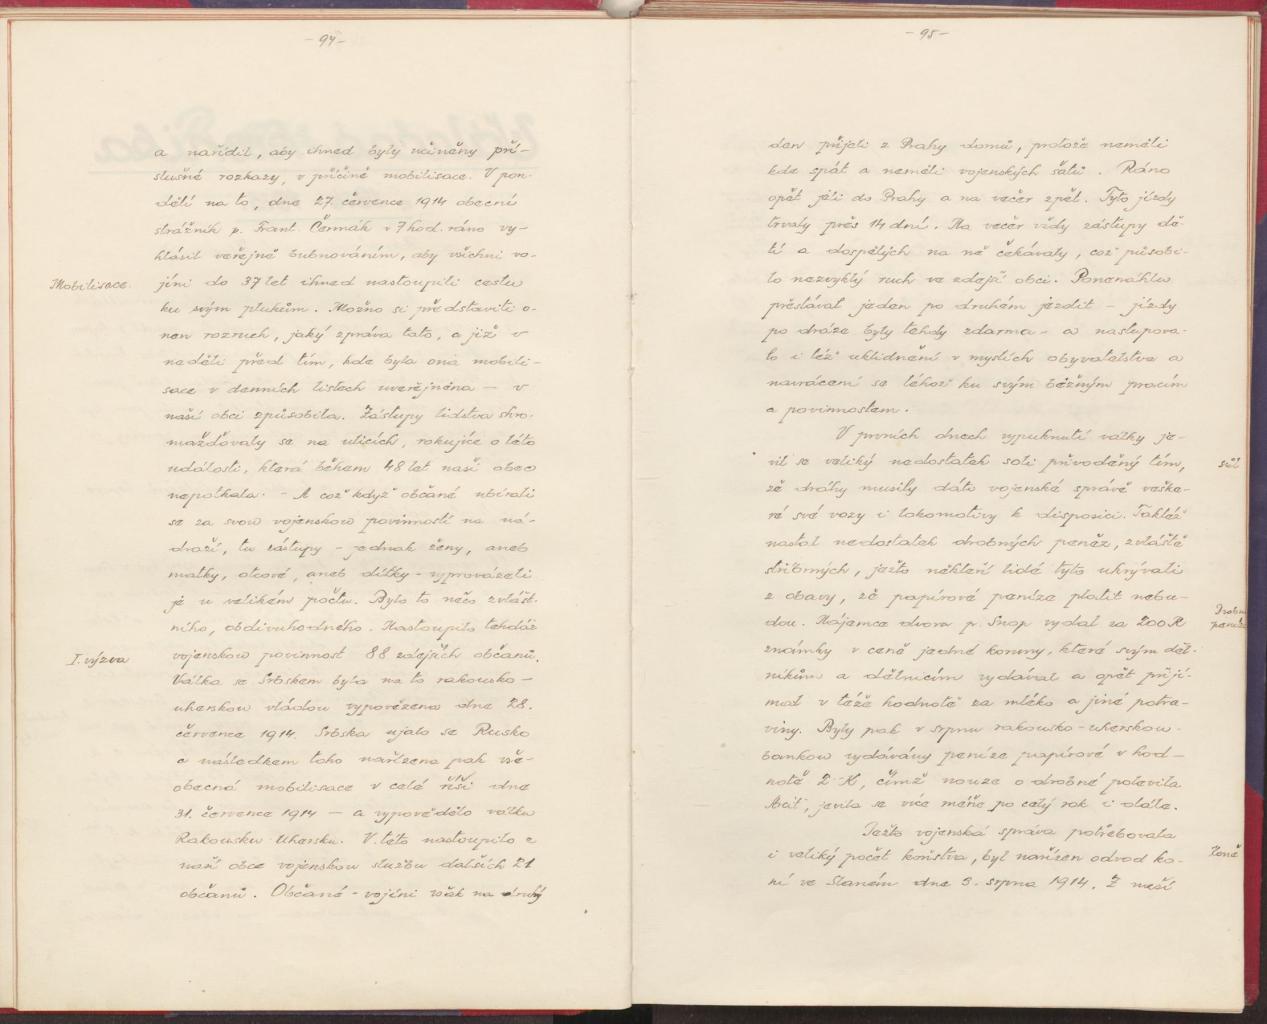 - 94 -
a nařídil, aby ihned byly učiněny pří-
slušné rozkazy, v příčině mobilisace. V pon-
dělí na to, dne 27. července 1914 obecní
strážník p. Frant. Čermák v 7 hod. ráno vy-
hlásil veřejně bubnováním, aby všichni vo-
Mobilisace.
jíni do 37 let ihned nastoupili cestu
ku svým plukům. Možno si představiti o-
nen rozruch, jaký zpráva tato, a již v
neděli před tím, kde byla ona mobili-
sace v denních listech uveřejněna — v
naší obci způsobila. Zástupy lidstva shro-
mažďovaly se na ulicích, rokujíce o této
události, která během 48 let naši obec
nepotkala. - A což když občané ubírali
se za svou vojenskou povinností na ná-
draží, tu zástupy - jednak ženy, aneb
matky, otcové, aneb dítky - vyprovázeli
je u velikém počtu. Bylo to něco zvlášt-
ního, obdivuhodného. Nastoupilo tehdáž
I. výzva
vojenskou povinnost 88 zdejších občanů.
Válka se Srbskem byla na to rakousko-
uherskou vládou vypovězena dne 28.
července 1914. Srbska ujalo se Rusko
a následkem toho nařízena pak vše-
obecná mobilisace v celé říši dne
31. července 1914 — a vypovědělo válku
Rakousku Uhersku. V této nastoupilo z
naší obce vojenskou službu dalších 21
občanů. Občané - vojíni však na druhý
- 95 -
den přijeli z Prahy domů, protože neměli
kde spát a neměli vojenských šatů. Ráno
opět jeli do Prahy a na večer zpět. Tyto jízdy
trvaly přes 14 dní. Na večer vždy zástupy dě-
tí a dospělých na ně čekávaly, což působi-
lo nezvyklý ruch ve zdejší obci. Ponenáhlu
přestával jeden po druhém jezdit - jízdy
po dráze byly tehdy zdarma - a nastupova-
lo i též uklidnění v myslích obyvatelstva a
navrácení se téhož ku svým běžným pracím
a povinnostem.
V prvních dnech vypuknutí války je-
vil se veliký nedostatek soli přivoděný tím,
sůl
že dráhy musily dáti vojenské správě veške-
ré své vozy i lokomotivy k disposici. Taktéž
nastal nedostatek drobných peněz, zvláště
stříbrných, ježto někteří lidé tyto ukrývali
z obavy, že papírové peníze platit nebu-
Drobné
peníze
dou. Nájemce dvora p. Snop vydal za 200 K
známky v ceně jedné koruny, které svým děl-
níkům a dělnicím vydával a opět přijí-
mal v téže hodnotě za mléko a jiné potra-
viny. Byly pak v srpnu rakousko-uherskou
bankou vydávány peníze papírové v hod-
notě 2 K, čímž nouze o drobné polevila
Ač, jevila se více méně po celý rok i dále.
Ježto vojenská správa potřebovala
Koně
i veliký počet koňstva, byl nařízen odvod ko-
ní ve Slaném dne 3. srpna 1914. Z naší